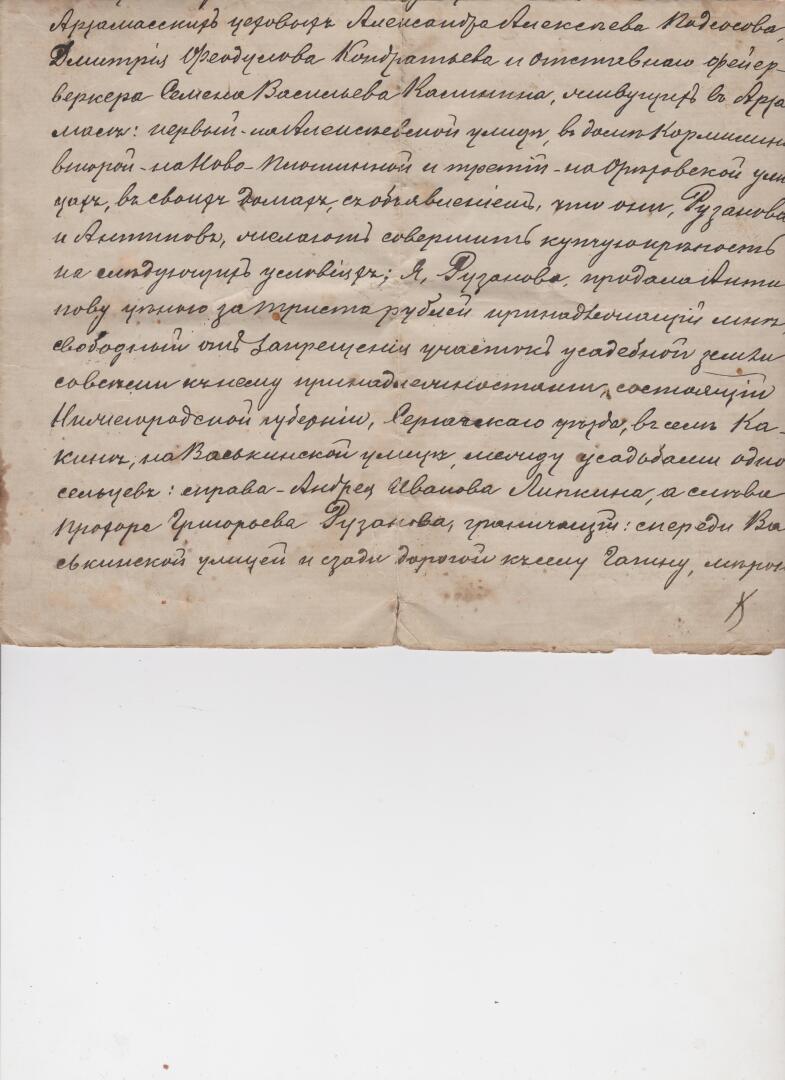 Арзамасскихъ цеховыхъ Александра Алексѣева Подсосова,
Дмитрія Ѳеодулова Кондратьева и отставнаго фейер-
веркера Семена Васильева Калинина, живущихъ въ Арза
масѣ: первый-на Алексѣевской улицѣ, въ домѣ Кормилицы
второй-на Ново-Площинной и третій-на Орѣховской ули
цахъ, въ своихъ домахъ, съ объявленіемъ, что они, Рузанова
и Антиповъ, желаютъ совершить купчую крѣпость
на слѣдующихъ условіяхъ; Я, Рузанова, продала Анти
пову цѣною за триста рублей принадлежащій мнѣ,
свободный отъ запрещенія участокъ усадебной земли
со всѣми къ нему принадлежностями, состоящій
Нижегородской губерніи, Сергачскаго уѣзда, въ селѣ Ка-
кинѣ, на Васькинской улицѣ, между усадьбами одно
сельцевъ: справа-Андрея Иванова Липкина, а слѣва
Прохора Григорьева Рузанова, граничащій: спереди Ва
ськинской улицей и сзади дорогой къ селу Гагину, мѣрою